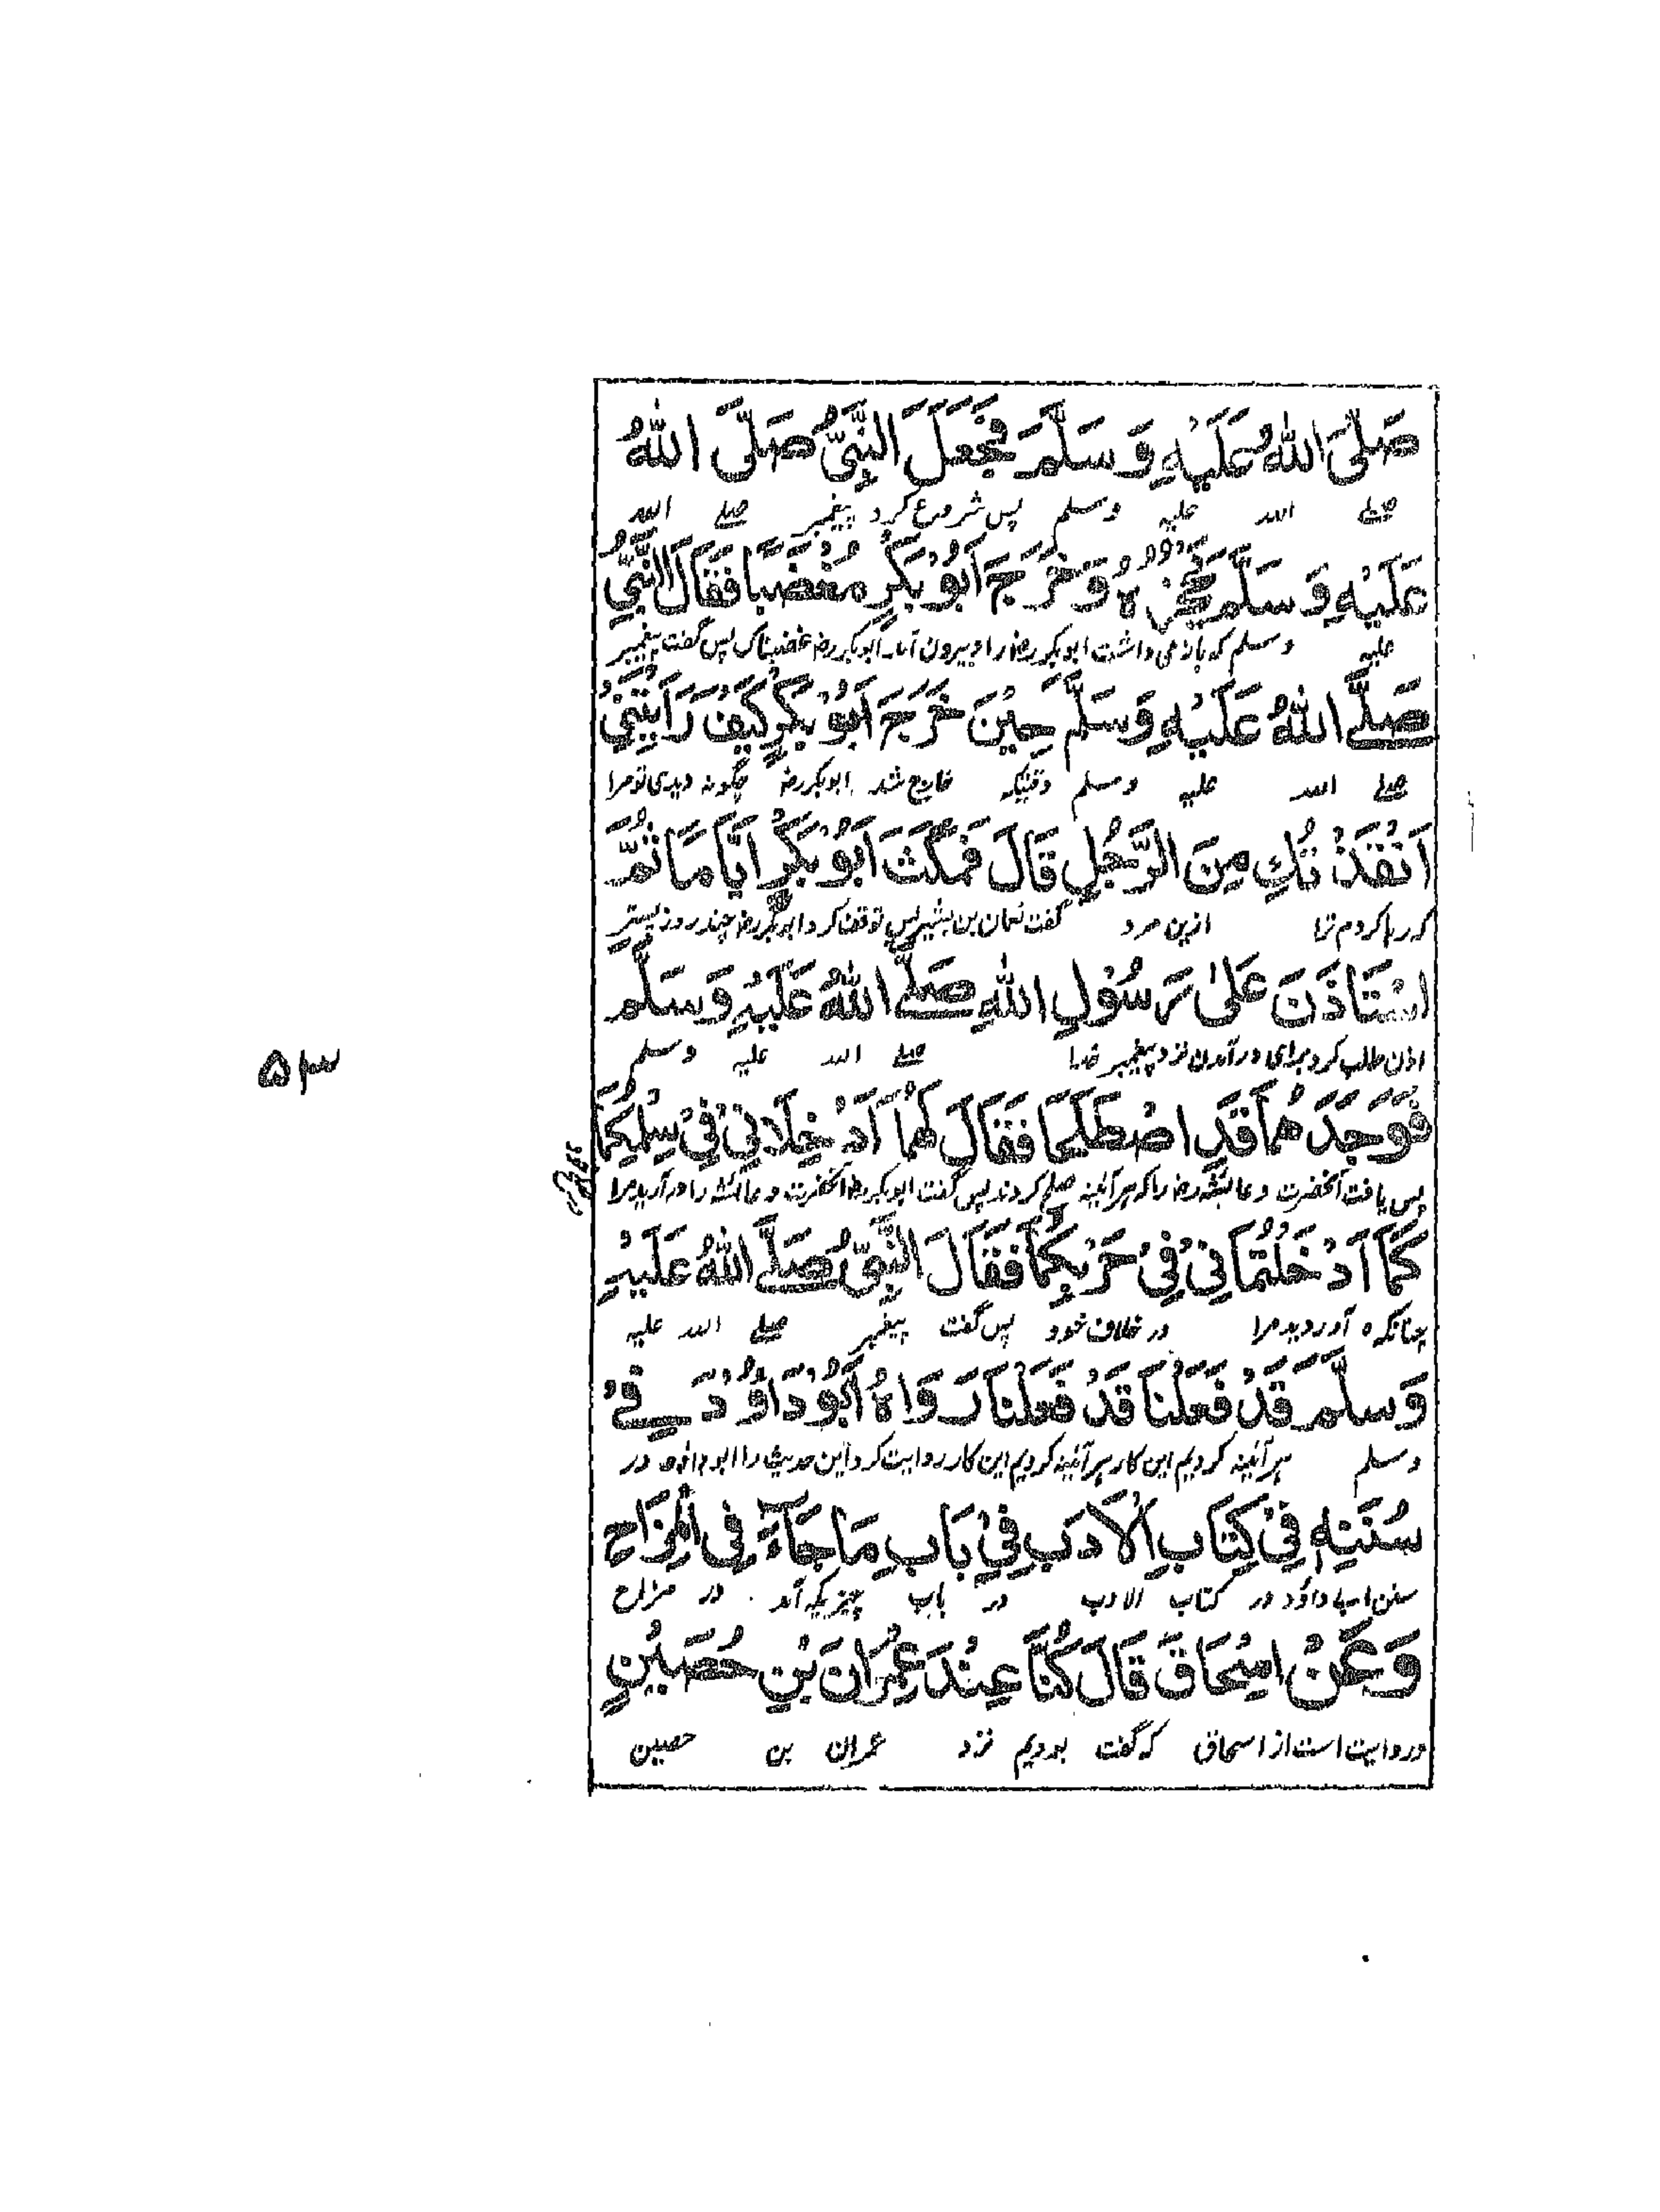 صَلَّى اللهُ عَلَيْهِ وَسَلَّمَ فَجَعَلَ النَّبِيُّ صَلَّى اللهُ
صلے الله علیه وسلم پس شروع کرد پیغمبر صلے الله
عَلَيْهِ وَسَلَّمَ يَحْجُزُهُ وَخَرَجَ اَبُوْ بَكْرٍ مُغْضَبًا فَقَالَ النَّبِيُّ
علیه وسلم که باز می داشت ابوبکر رض را و بیرون آمد ابوبکر رض غضبناک پس گفت پیغمبر
صَلَّے اللهُ عَلَيْهِ وَسَلَّمَ حِيْنَ خَرَجَ اَبُوْ بَكْرٍ كَيْفَ رَاَيْتِنِيْ
صلے الله علیه وسلم وقتیکه خارج شد ابوبکر رض چگونه دیدی تو مرا
اَنْقَذْتُكِ مِنَ الرَّجُلِ قَالَ فَمَكَثَ اَبُوْ بَكْرٍ اَيَّامًا ثُمَّ
که رها کردم ترا ازین مرد گفت نعمان بن بشیر پس توقف کرد ابوبکر رض چند روز پستر
اسْتَاذَنَ عَلىٰ رَسُوْلِ اللهِ صَلَّے اللهُ عَلَيْهِ وَسَلَّمَ
اذن طلب کرد برای در آمدن نزد پیغمبر خدا صلے الله علیه وسلم
۵۳
فَوَجَدَهُمَا قَدِ اصْطَلَحَا فَقَالَ لَهُمَا اَدْخِلَانِيْ فِيْ سِلْمِكُمَا
پس یافت آنحضرت و عائشه رض را که هر آئینه صلح کردند پس گفت ابوبکر رض آنحضرت و عائشه را در آرید مرا
كَمَا اَدْخَلْتُمَانِيْ فِيْ حَرْبِكُمَا فَقَالَ النَّبِيُّ صَلَّے اللهُ عَلَيْهِ
چنانکه آوردید مرا در خلاف خود پس گفت پیغمبر صلے الله علیه
وَسَلَّمَ قَدْ فَعَلْنَا قَدْ فَعَلْنَا رَوَاهُ اَبُوْ دَاوُدَ فِيْ
وسلم هر آئینه کردیم این کار هر آئینه کردیم این کار روایت کرد این حدیث را ابو داؤد در
سُنَنِهٖ فِيْ كِتَابِ الْاَدَبِ فِيْ بَابِ مَا جَآءَ فِي الْمِزَاحِ
سنن ابی داؤد در کتاب الادب در باب چیزیکه آمد در مزاح
وَعَنْ اِسْحَاقَ قَالَ كُنَّا عِنْدَ عِمْرَانَ بْنِ حُصَيْنٍ
و روایت است از اسحاق که گفت بودیم نزد عمران بن حصین